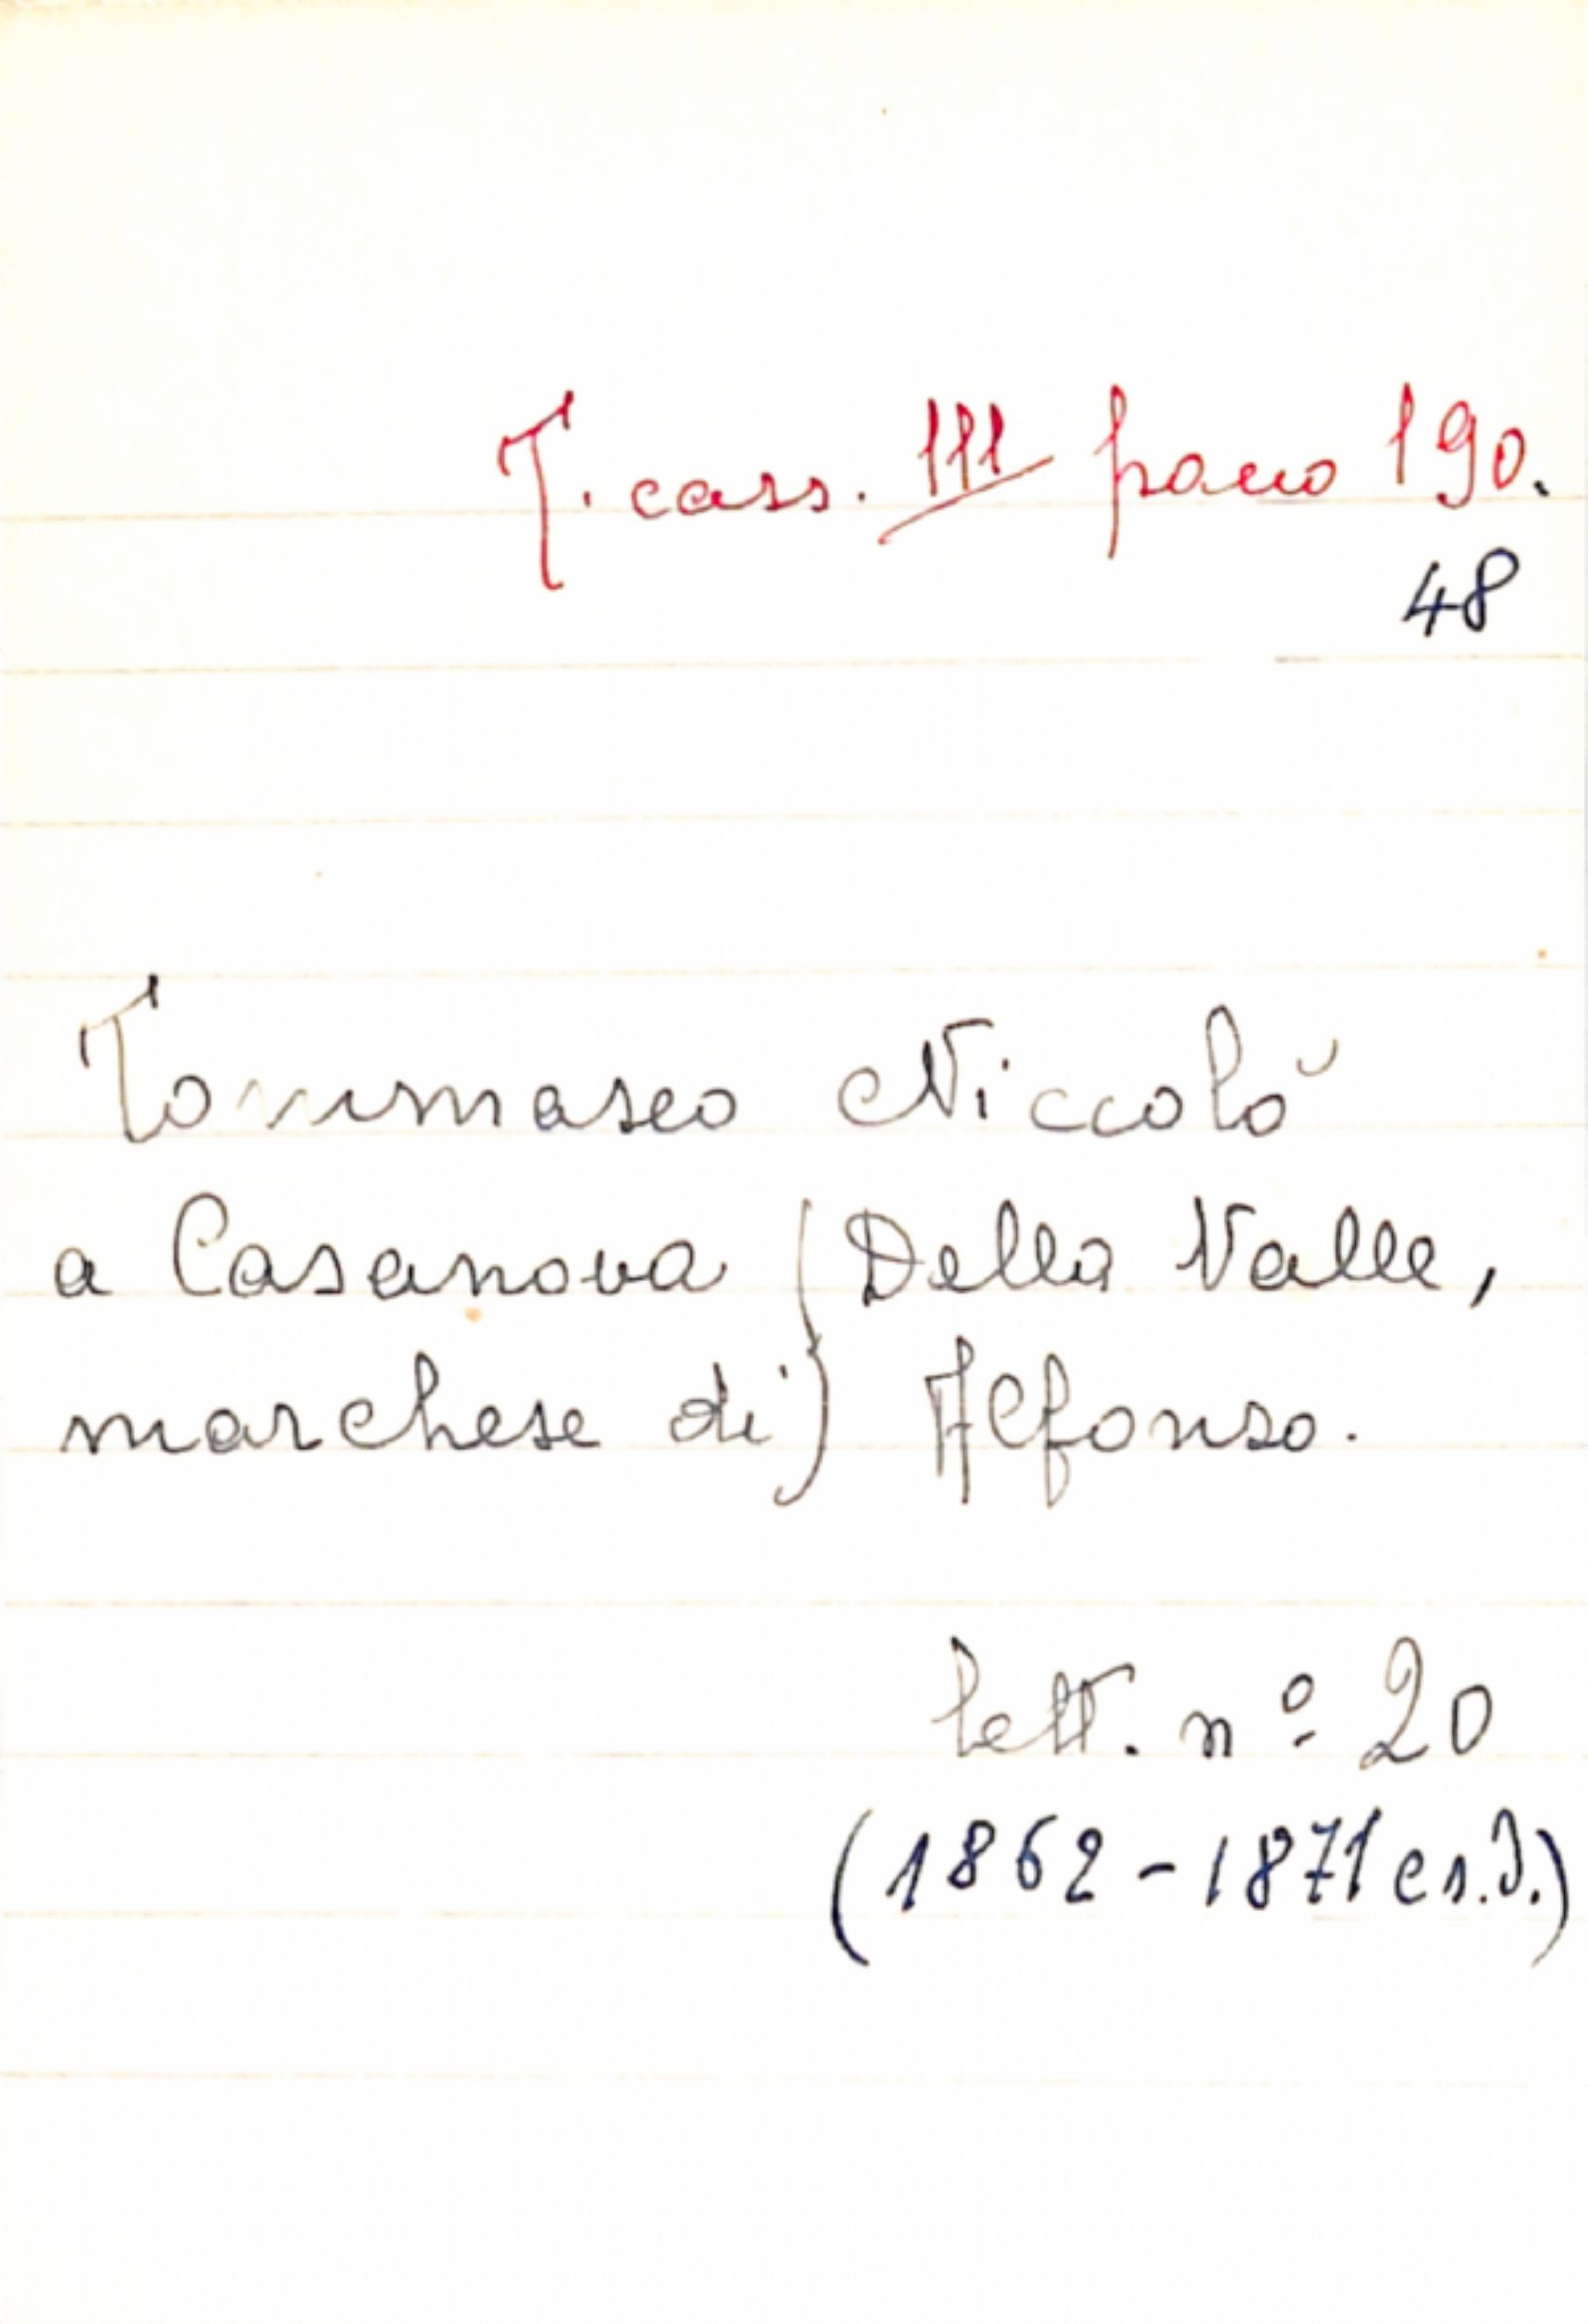 T. cass. III pacco 190.
48
Tommaseo Niccolò
a Casanova (Della Valle,
marchese di) Alfonso.
lett. nº 20
(1862-1871 e s.d.)